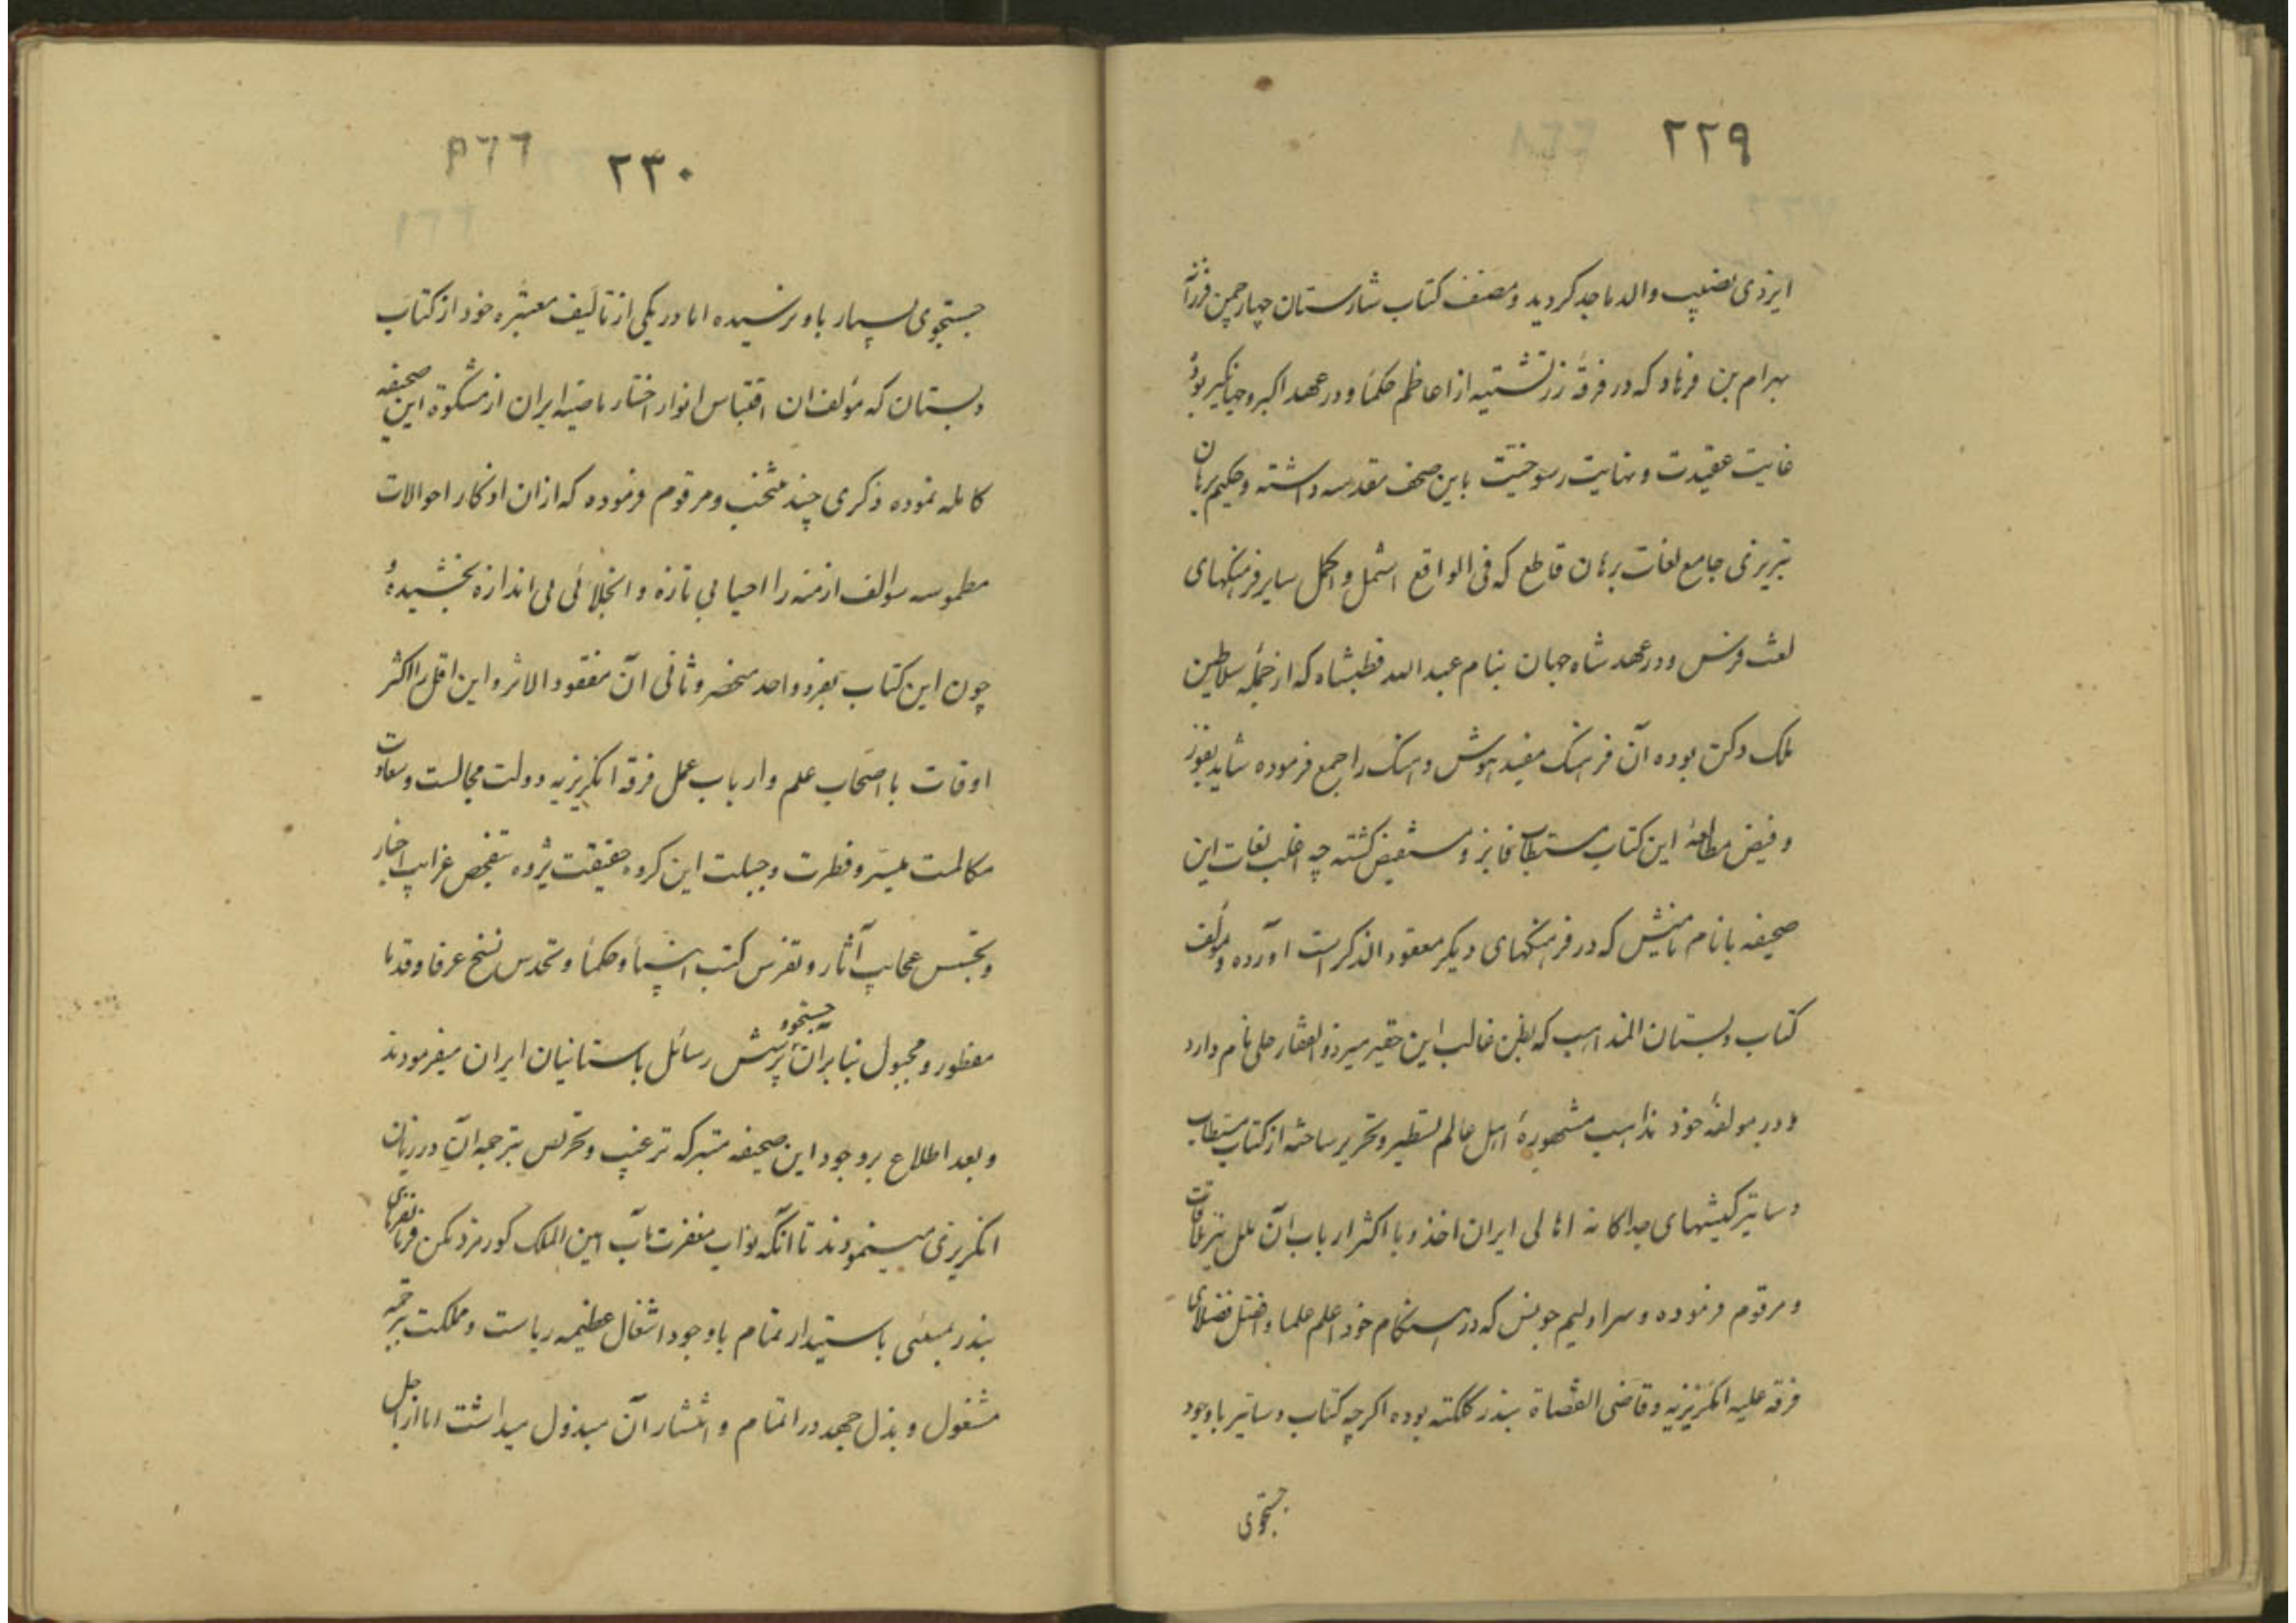 ٢٢٩
ایزدی نصیب والد ماجد کردید و مصنف کتاب شارستان چهار چمن فرزانه
بهرام بن فرهاد که در فرقهٔ زرتشتیه از اعاظم حکما و در عهد اکبر و جهانکیر بوده
غایت عقیدت و نهایت رسوخیت باین صحف مقدسه داشته و حکیم برهان
تبریزی جامع لغات برهان قاطع که فی الواقع اشمل و اکمل سایر فرهنکهای
لغت فرس و در عهد شاه جهان بنام عبد الله قطبشاه که از جمله سلاطین
ملک دکن بوده آن فرهنک مفید هوش و هنک را جمع فرموده شاید بفوز
و فیض مطالعهٔ این کتاب مستطاب فایز و مستفیض کشته چه اغلب لغات این
صحیفه با نام نامیش که در فرهنکهای دیکر مفقود الذکر است آورده و مولف
کتاب دبستان المذاهب که بظن غالب این حقیر میر ذو الفقار علی نام دارد
و در مولفهٔ خود مذاهب مشهورهٔ اهل عالم تسطیر و تحریر ساخته از کتاب مستطاب
دساتیر کیشهای جداکانه اهالی ایران اخذ و با اکثر ارباب آن ملل نیز ملاقات
و مرقوم فرموده و سر اولیم جونس که در هنکام خود اعلم علما و افضل فضلای
فرقه علیه انکریزیه و قاضی القضاة بندر کلکته بوده اکرچه کتاب دساتیر با وجود
جستجوی
٢٣٠
جستجوی بسیار باو نرسیده اما در یکی از تالیف معتبره خود از کتاب
دبستان که مؤلف ان اقتباس انوار اخبار ماضیه ایران از مشکوة این صحیفه
کامله نموده ذکری چند منتخب و مرقوم فرموده که از ان اذکار احوالات
مطموسه سوالف ازمنه را احیایی تازه و انجلائی بی اندازه بخشیده و
چون این کتاب بفرد واحد منحصر و ثانی آن مفقود الاثر و این اقل را اکثر
اوقات با اصحاب علم و ارباب عمل فرقه انکریزیه دولت مجالست و سعادت
مکالمت میسر و فطرت و جبلت این کروه حقیقت پژوه بتفحص غرایب اخبار
و تجسس عجایب آثار و تفرس کتب انبیا و حکما و تحدس نسخ عرفا و قدما
مفطور و مجبول بنابر آن جستجو و پرسش رسائل باستانیان ایران میفرمودند
و بعد اطلاع بر وجود این صحیفه متبرکه ترغیب و تحریص بترجمه آن در زبان
انکریزی مینمودند تا آنکه نواب مغفرت مآب امین الملک کورنر دنکن فرمانفرمای
بندر بمبئی باستبداد تمام با وجود اشغال عظیمه ریاست و مملکت بترجمه
مشغول و بذل جهد در اتمام و انتشار آن مبذول میداشت اما از اجل